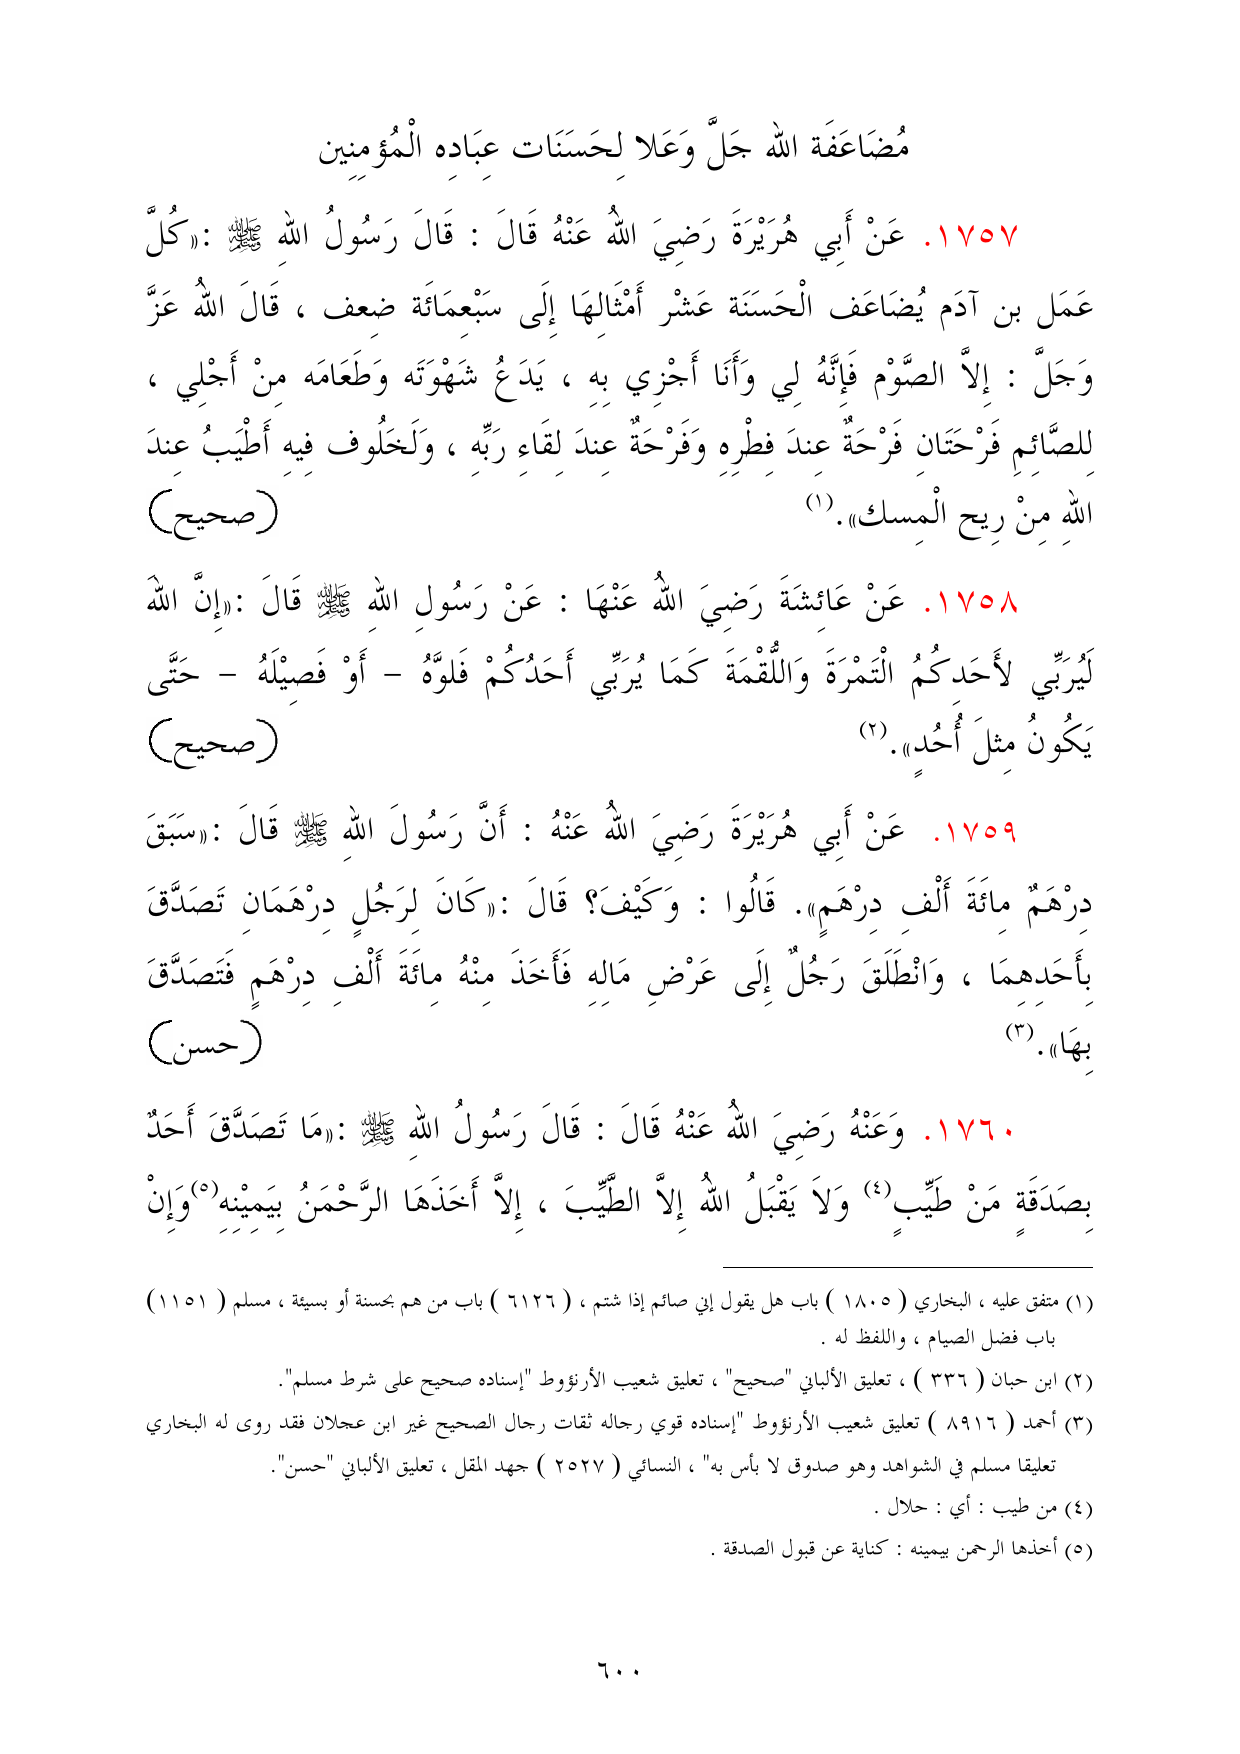 مُضَاعَفَة الله جَلَّ وَعَلا لِحَسَنَات عِبَادِه الْمُؤمِنِين
١٧٥٧. عَنْ أَبِي هُرَيْرَةَ رَضِيَ اللهُ عَنْهُ قَالَ : قَالَ رَسُولُ اللهِ ﷺ :«كُلَّ
عَمَل بن آدَم يُضَاعَف الْحَسَنَة عَشْر أَمْثَالِهَا إِلَى سَبْعِمَائَة ضِعف ، قَالَ اللهُ عَزَّ
وَجَلَّ : إِلاَّ الصَّوْم فَإِنَّهُ لِي وَأَنَا أَجْزِي بِهِ ، يَدَعُ شَهْوَتَه وَطَعَامَه مِنْ أَجْلِي ،
لِلصَّائِمِ فَرْحَتَانِ فَرْحَةٌ عِندَ فِطْرِهِ وَفَرْحَةٌ عِندَ لِقَاءِ رَبِّهِ ، وَلَخَلُوف فِيهِ أَطْيَبُ عِندَ
اللهِ مِنْ رِيح الْمِسك».(١) (صحيح)
١٧٥٨. عَنْ عَائِشَةَ رَضِيَ اللهُ عَنْهَا : عَنْ رَسُولِ اللهِ ﷺ قَالَ :«إِنَّ اللهَ
لَيُرَبِّي لأَحَدِكُمُ الْتَمْرَةَ وَاللُّقْمَةَ كَمَا يُرَبِّي أَحَدُكُمْ فَلوَّهُ – أَوْ فَصِيْلَهُ – حَتَّى
يَكُونُ مِثلَ أُحُدٍ».(٢) (صحيح)
١٧٥٩. عَنْ أَبِي هُرَيْرَةَ رَضِيَ اللهُ عَنْهُ : أَنَّ رَسُولَ اللهِ ﷺ قَالَ :«سَبَقَ
دِرْهَمٌ مِائَةَ أَلْفِ دِرْهَمٍ». قَالُوا : وَكَيْفَ؟ قَالَ :«كَانَ لِرَجُلٍ دِرْهَمَانِ تَصَدَّقَ
بِأَحَدِهِمَا ، وَانْطَلَقَ رَجُلٌ إِلَى عَرْضِ مَالِهِ فَأَخَذَ مِنْهُ مِائَةَ أَلْفِ دِرْهَمٍ فَتَصَدَّقَ
بِهَا».(٣) (حسن)
١٧٦٠. وَعَنْهُ رَضِيَ اللهُ عَنْهُ قَالَ : قَالَ رَسُولُ اللهِ ﷺ :«مَا تَصَدَّقَ أَحَدٌ
بِصَدَقَةٍ مَنْ طَيِّبٍ(٤) وَلاَ يَقْبَلُ اللهُ إِلاَّ الطَّيِّبَ ، إِلاَّ أَخَذَهَا الرَّحْمَنُ بِيَمِيْنِهِ(٥)وَإِنْ
(١) متفق عليه ، البخاري ( ١٨٠٥ ) باب هل يقول إني صائم إذا شتم ، ( ٦١٢٦ ) باب من هم بحسنة أو بسيئة ، مسلم ( ١١٥١ )
باب فضل الصيام ، واللفظ له .
(٢) ابن حبان ( ٣٣٦ ) ، تعليق الألباني "صحيح" ، تعليق شعيب الأرنؤوط "إسناده صحيح على شرط مسلم".
(٣) أحمد ( ٨٩١٦ ) تعليق شعيب الأرنؤوط "إسناده قوي رجاله ثقات رجال الصحيح غير ابن عجلان فقد روى له البخاري
تعليقا مسلم في الشواهد وهو صدوق لا بأس به" ، النسائي ( ٢٥٢٧ ) جهد المقل ، تعليق الألباني "حسن".
(٤) من طيب : أي : حلال .
(٥) أخذها الرحمن بيمينه : كناية عن قبول الصدقة .
٦٠٠